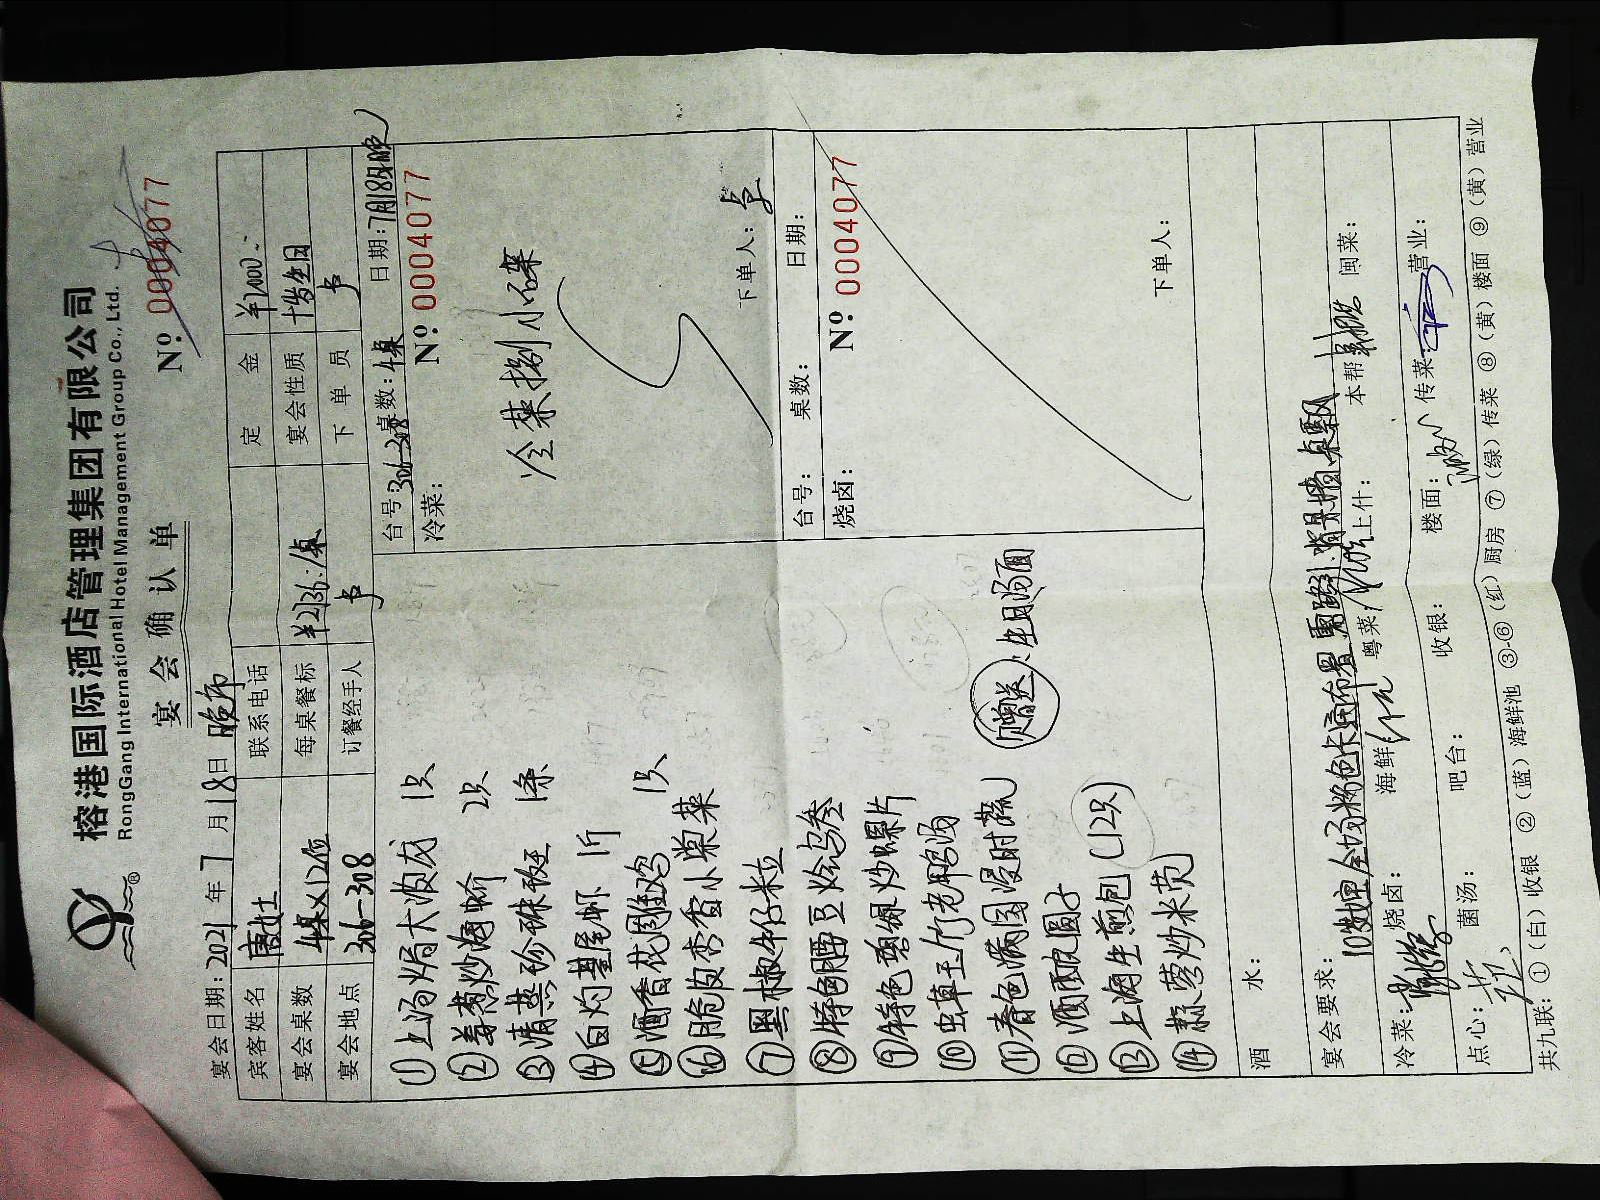 榕港国际酒店管理集团有限公司
RongGang International Hotel Management Group Co., Ltd.
宴会确认单
№ 0004077
宴会日期: 2021 年 7 月 18 日 晚市
宾客姓名 唐女士 联系电话 定金 ¥1000.-
宴会桌数 4桌×12位 每桌餐标 ¥2136:/桌 宴会性质 十岁生日
宴会地点 306-308 订餐经手人 下单员
① 上汤焗大波龙 1只
② 姜葱炒海蟹 2只
③ 清蒸珍珠斑 1条
④ 白灼基尾虾 1斤
⑤ 酒香花雕鸡 1只
⑥ 脆皮香小棠菜
⑦ 黑椒牛仔粒
⑧ 特色腰豆烩乌参
⑨ 特色翠绿炒螺片
⑩ 虫草玉竹老鸭汤
⑪ 春色满园浸时蔬
⑫ 酒酿圆子
⑬ 上海生煎包 (12只)
⑭ 蒜蓉炒米苋
赠送: 生日汤面
台号: 306-308 桌数: 4桌 日期: 7月18日晚
冷菜: № 0004077
冷菜捌小碟
下单人:
台号: 桌数: 日期:
烧卤: № 0004077
下单人:
酒水:
宴会要求: 10岁处理全场粉色卡通布置 路引.背景墙.桌飘
冷菜: 烧卤: 海鲜 粤菜 上什: 本帮 闽菜:
点心: 菌汤: 吧台: 收银: 楼面: 传菜 营业:
共九联: ①(白)收银 ②(蓝)海鲜池 ③-⑥(红)厨房 ⑦(绿)传菜 ⑧(黄)楼面 ⑨(黄)营业